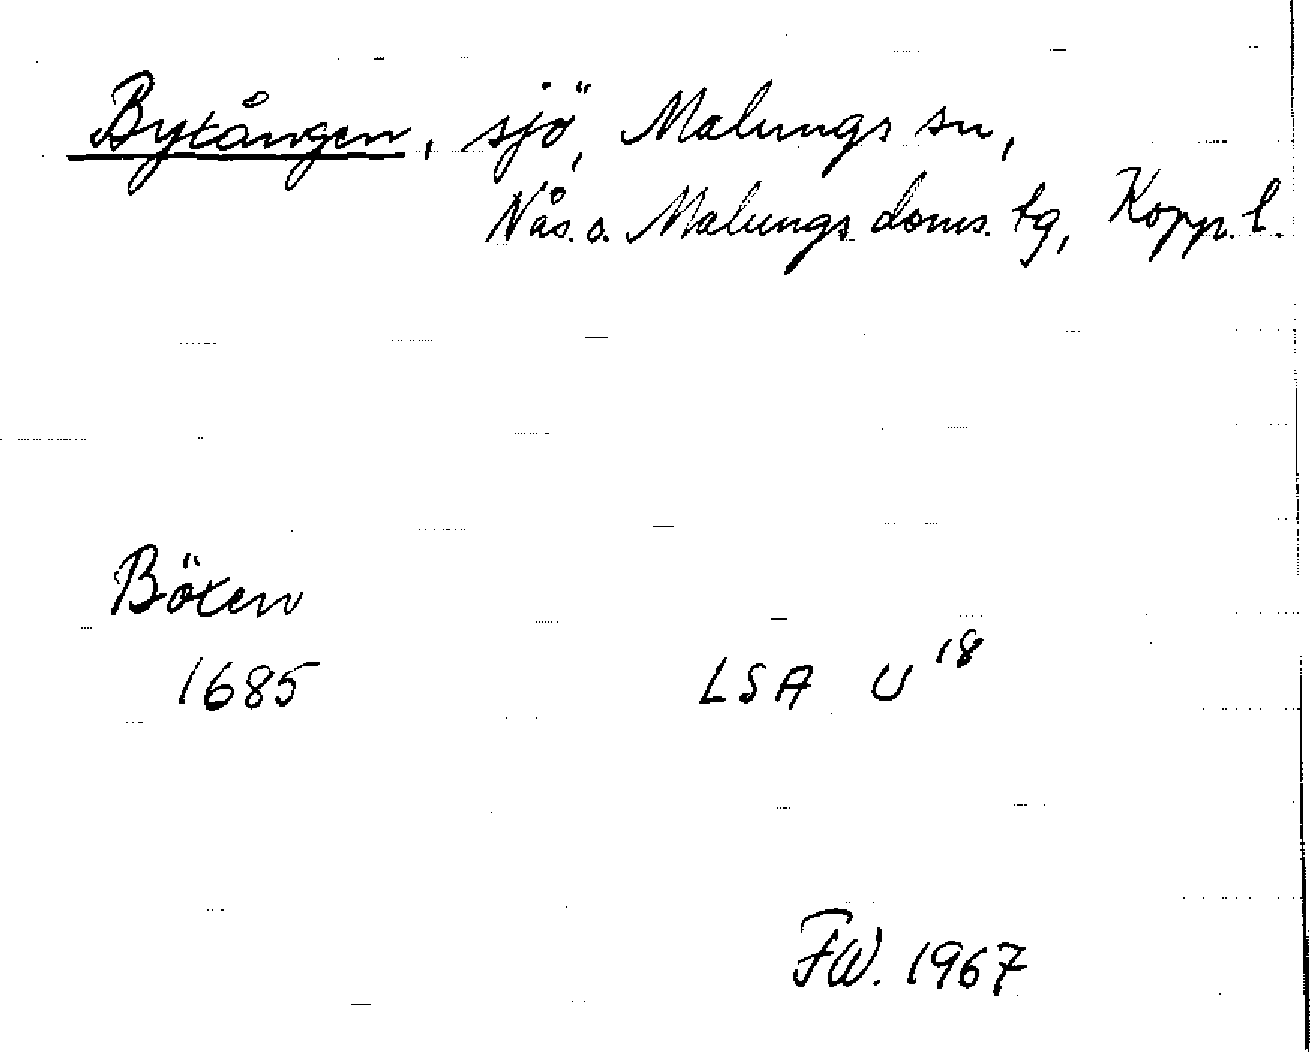 Bytången, sjö, Malungs sn,
Nås. o. Malungs doms. tg, Kopp. l.
Böten
1685 LSA U 18
FW. 1967